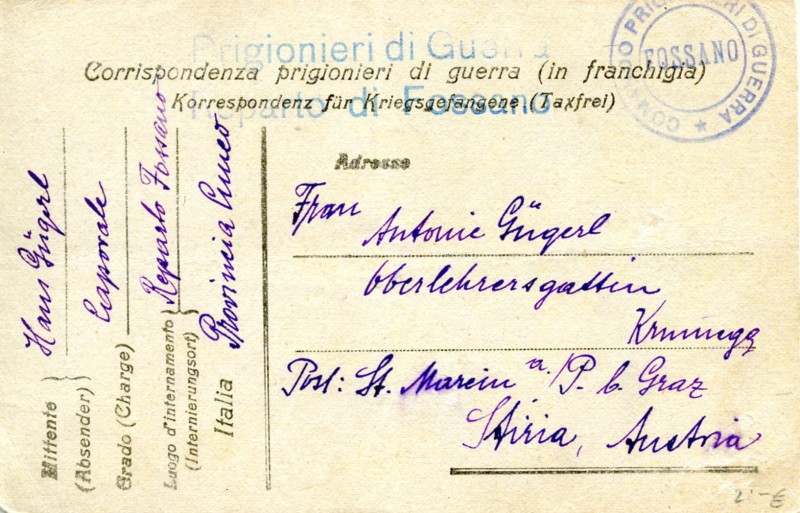 Prigionieri di Guerra
Reparto di Fossano
COMANDO PRIGIONIERI DI GUERRA ★
FOSSANO
Corrispondenza prigionieri di guerra (in franchigia)
Korrespondenz für Kriegsgefangene (Taxfrei)
Mittente
(Absender)
Hans Gügerl
Grado (Charge)
Caporale
Luogo d'internamento
(Internierungsort)
Reparto Fossano
Provincia Cuneo
Italia
Adresse
Frau
Antonie Gügerl
Oberlehrersgattin
Krumegg
Post: St. Marein a/P. b. Graz
Stiria, Austria